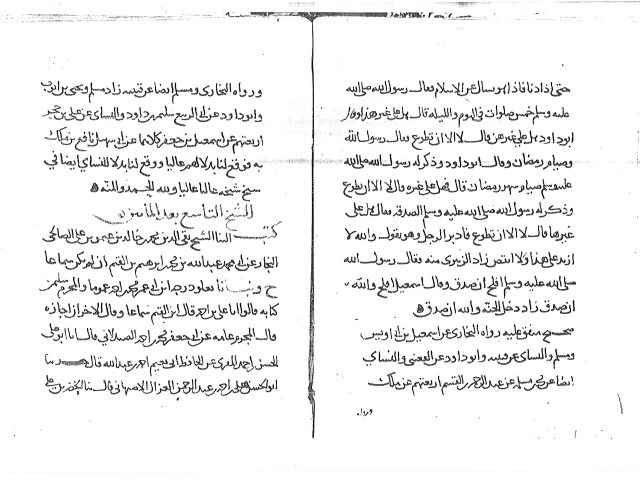 حتى اذا دنا فاذا هو يسال عن الاسلام فقال رسول الله صلى الله
عليه وسلم خمس صلوات في اليوم والليله قال هل علي غيرهن زاد
ابو داود هل علي غيرهن قال لا الا ان تطوع فقال رسول الله
وصيام رمضان وقال ابو داود وذكر له رسول الله صلى الله
عليه وسلم صيام شهر رمضان قال هل علي غيره قال لا الا ان تطوع
وذكر له رسول الله صلى الله عليه وسلم الصدقه فقال هل علي
غيرها قال لا الا ان تطوع فادبر الرجل وهو يقول والله لا
ازيد على هذا ولا انتقص زاد الزبيري منه فقال رسول الله
صلى الله عليه وسلم افلح ان صدق وقال اسمعيل افلح والله
ان صدق زاد دخل الجنه والله ان صدق
صحيح متفق عليه رواه البخاري عن اسمعيل بن ابي اويس
ومسلم والنساي عن قتيبه وابو داود عن القعنبي والنساي
ايضا عن محمد بن مسلمه عن عبد الرحمن بن القسم اربعتهم عن ملك
ورواه
ورواه البخاري ومسلم ايضا عن قتيبه زاد مسلم ويحيى بن ايوب
وابو داود عن ابي الربيع سليمن بن داود والنساي عن علي بن حجر
اربعتهم عن اسمعيل بن جعفر كلاهما عن ابي سهيل نافع بن ملك
به فوقع لنا بدلا لهم عاليا ووقع لنا بدلا للنساي ايضا في
شيخ شيخه عاليا عاليا ولله الحمد والمنه
الشيخ التاسع بعد المأتين
كتب الينا الشيخ تقي الدين محمد بن خالد بن عمر بن علي الصالحي
النجار عن ابي محمد عبد الله بن محمد بن ابرهيم بن القيم ان لم يكن سماعا
ح وثنا
كتابه قالوا انا علي بن احمد قال ابن القيم سماعا وقال الاخران اجازه
عن ابي جعفر محمد بن احمد الصيدلاني قال انا ابو علي
الحسن بن احمد المقري عن الحافظ ابي نعيم احمد بن عبد الله قال ثنا
ابو الحسن علي بن احمد بن عبد الرحمن الغزال الاصبهاني قال ثنا